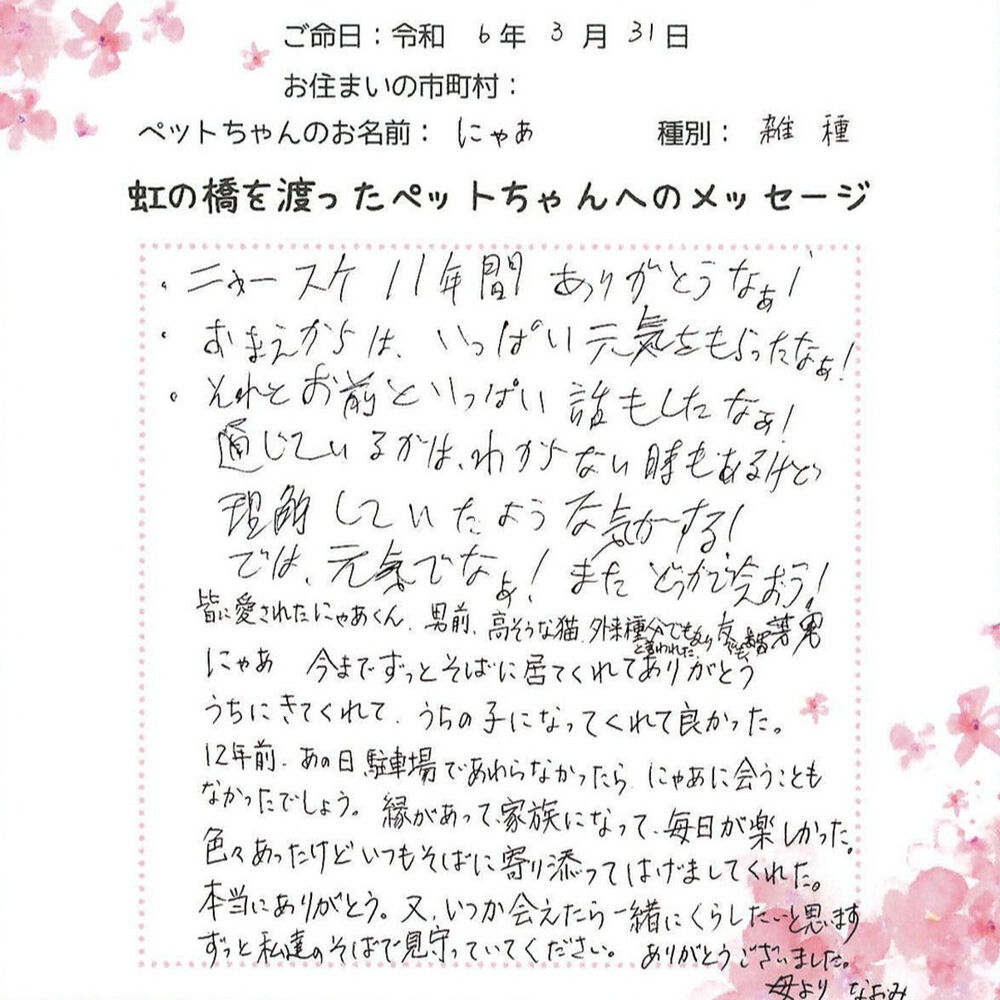 ご命日：令和 6年 3月 31日
お住まいの市町村：
ペットちゃんのお名前： にゃぁ 種別： 雑種
虹の橋を渡ったペットちゃんへのメッセージ
・ニャースケ 11年間 ありがとうなぁ!
・おまえからは、いっぱい元気をもらったなぁ!
・それとお前といっぱい話もしたなぁ!
通じているかは、わからない時もあるけど
理解していたような気がーする!
では、元気でなぁ! また どっかで会おう!
皆に愛されたにゃあくん、男前、高そうな猫、外来種
と言われた
にゃあ 今までずっとそばに居てくれてありがとう
うちにきてくれて、うちの子になってくれて良かった。
12年前、あの日駐車場であわらなかったら、にゃあに会うことも
なかったでしょう。縁があって、家族になって、毎日が楽しかった。
色々あったけどいつもそばに寄り添ってはげましてくれた。
本当にありがとう。又、いつか会えたら一緒にくらしたいと思います
ずっと私達のそばで見守っていてください。 ありがとうございました。
母より なおみ